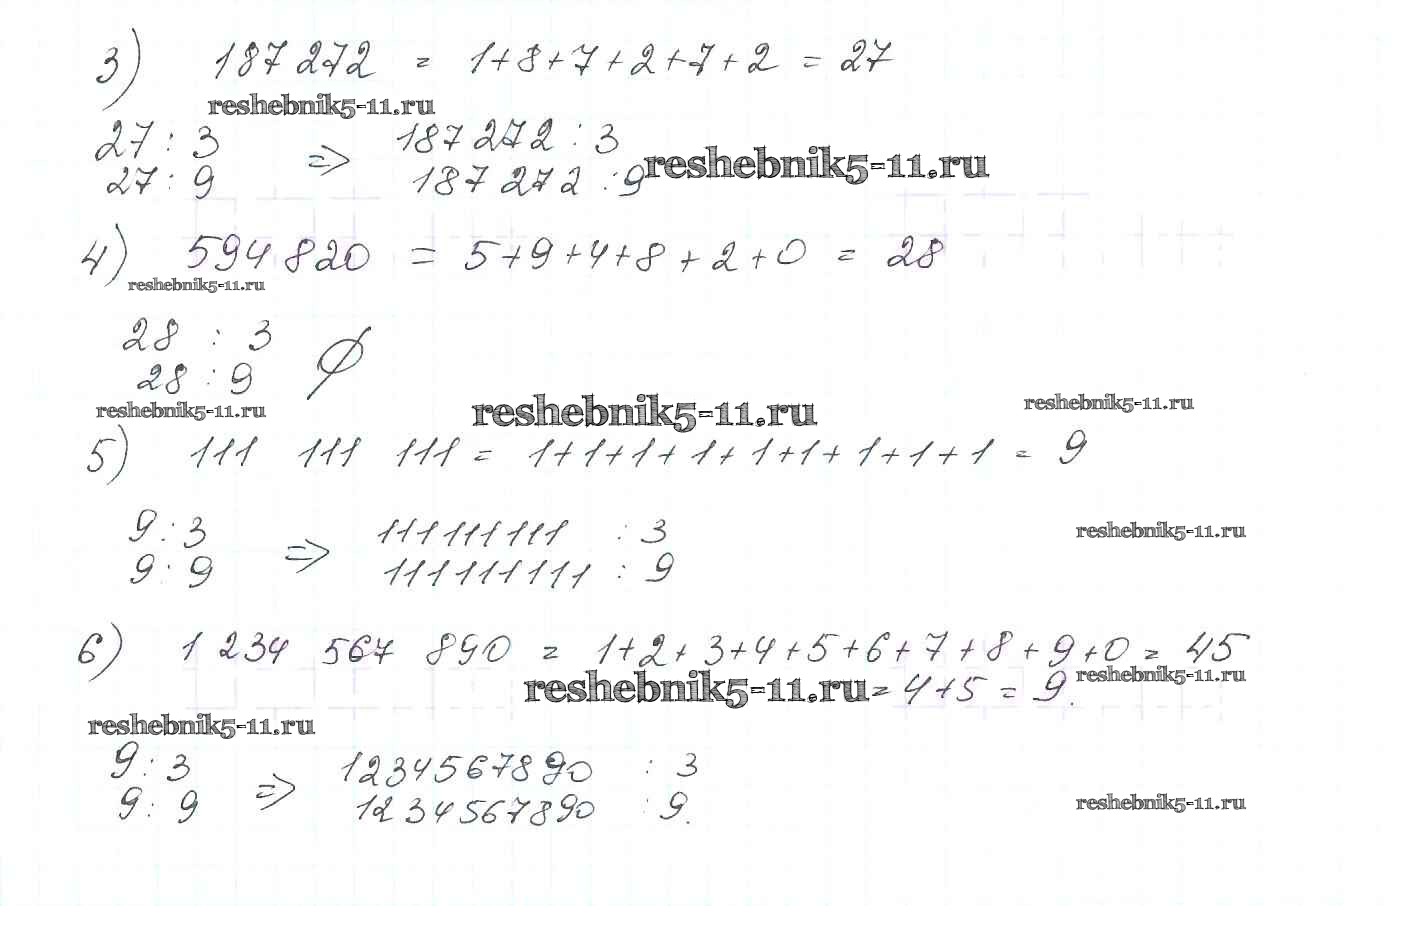 3) 187 272 = 1+8+7+2+7+2 = 27
reshebnik5-11.ru
27 : 3 => 187 272 : 3
27 : 9 187 272 : 9
reshebnik5-11.ru
4) 594 820 = 5+9+4+8+2+0 = 28
reshebnik5-11.ru
28 : 3
28 : 9 ∅
reshebnik5-11.ru reshebnik5-11.ru reshebnik5-11.ru
5) 111 111 111 = 1+1+1+1+1+1+1+1+1 = 9
9 : 3 => 111 111 111 : 3
reshebnik5-11.ru
9 : 9 111111111 : 9
6) 1 234 567 890 = 1+2+3+4+5+6+7+8+9+0 = 45
reshebnik5-11.ru = 4+5 = 9.
reshebnik5-11.ru
reshebnik5-11.ru
9 : 3 => 1234567890 : 3
9 : 9 1234567890 : 9.
reshebnik5-11.ru